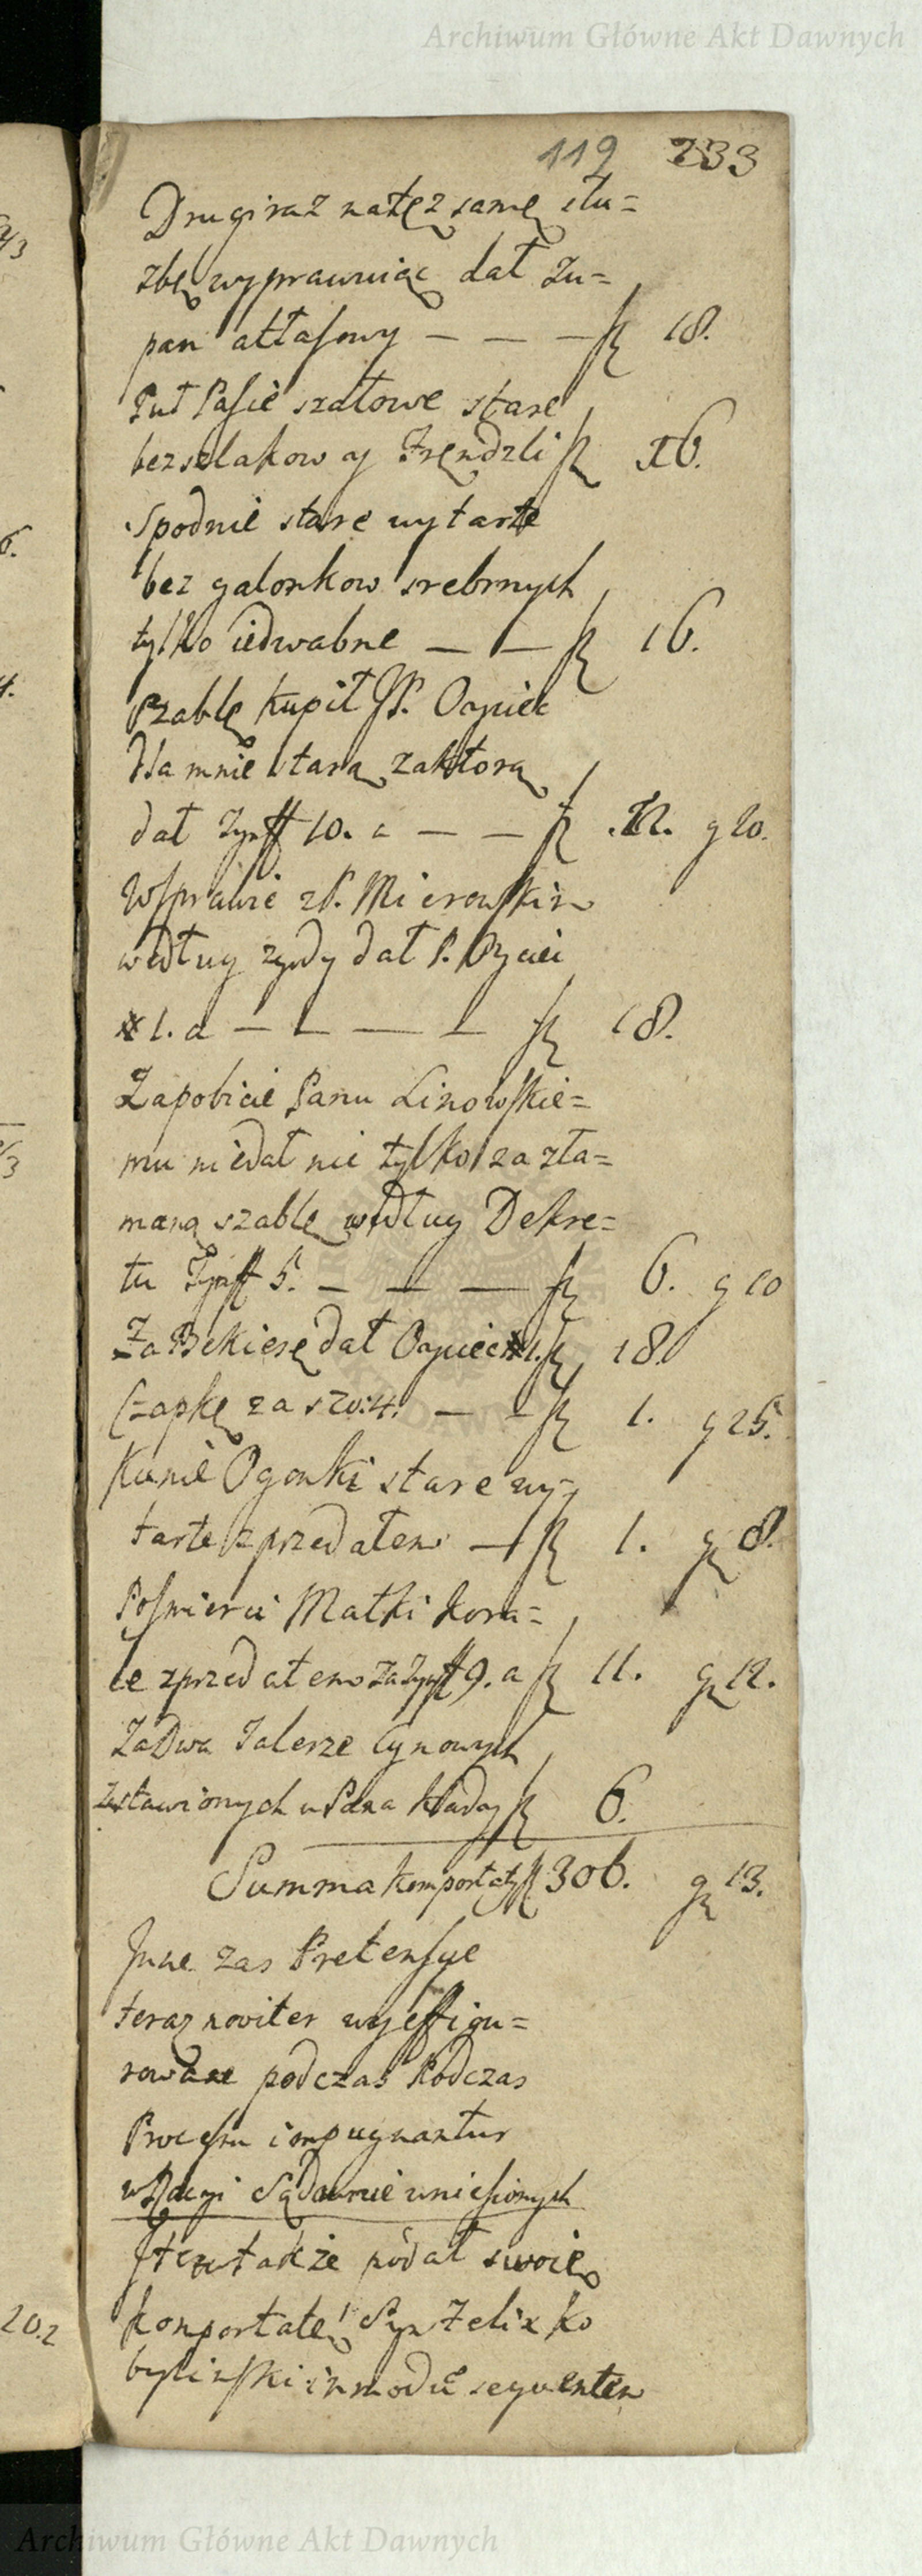 Archiwum Główne Akt Dawnych
119 233
Drugi raz natęz samę słu=
zbę wyprawuiąc dał Zu=
pan attłasowy — — — 18.
Puł Pasie szalowe stare
bez szlakow y Frendzli 16.
Spodnie stare wytarte
bez galonkow srebrnych
tylko iedwabne — — 16.
Szablę kupił JP. Oyciec
dla mnie starą za ktorą
dał Tynff 10. a — — 12. g 20.
W sprawie z P. Mierowskim
według zgody dał P. Oyciec
1. a — — — — 18.
Za pobicie Panu Linowskie=
mu niedał nic tylko za zła=
maną szablę według Dekre=
tu Tynff 5. — — — 6. g 10
Za Bekieszę dał Oyciec 1. 18.
Czapkę za szos: 4. — — 1. g 25.
Kunie Ogonki stare wy=
tarte zprzedałem — 1. g 8.
Po smierci Matki Kora=
le zprzedałem za Tynff 9. a 11. g 12.
Za Dwa Talerze Cynowych
zostawionych u Pana 6.
Summa komportaty 306. g 13.
Inne zas Pretensye
teraz noviter wyeffigu=
rowane podczas podczas
Procesu impugnantur
Sądownie wniesionych
Item także podał swoię
komportatę Syn Felix Ko
byliński in modū sequentem
20.2
Archiwum Główne Akt Dawnych